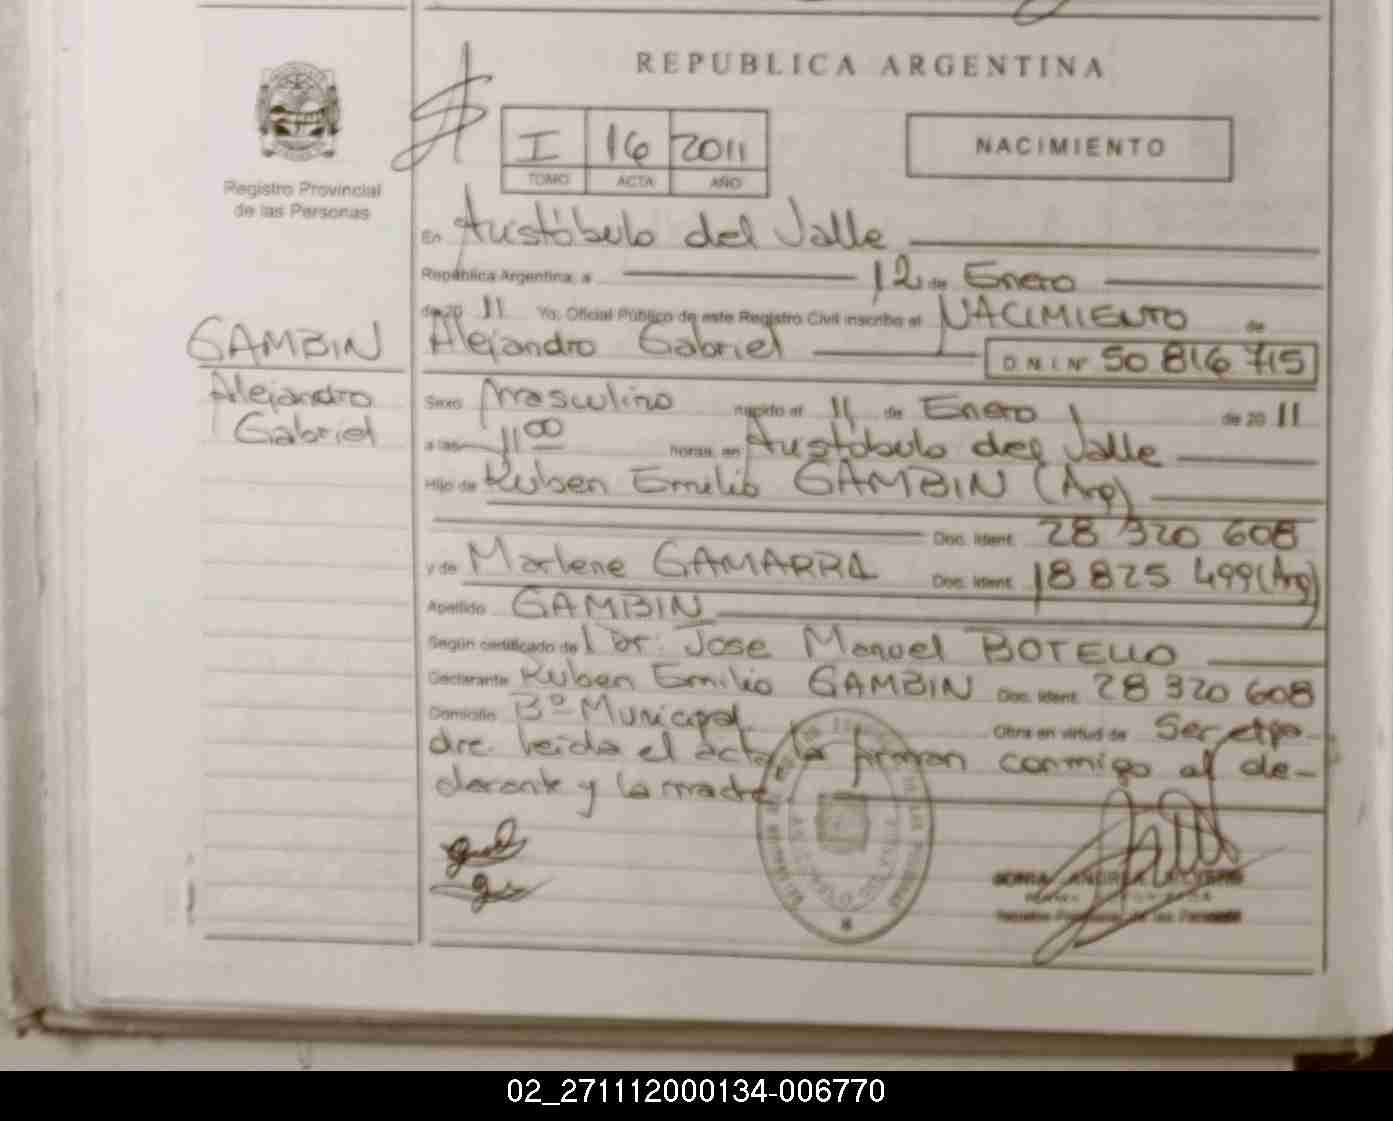 REPUBLICA ARGENTINA
I 16 2011
TOMO ACTA AÑO
NACIMIENTO
Registro Provincial
de las Personas
En Aristóbulo del Valle
República Argentina, a 12 de Enero
de 20 11 Yo, Oficial Público de este Registro Civil inscribo el NACIMIENTO de
Alejandro Gabriel D N I Nº 50 816 715
GAMBIN
Alejandro
Gabriel
Sexo Masculino nacido el 11 de Enero de 20 11
a las 11 00 horas, en Aristóbulo del Valle
Hijo de Ruben Emilio GAMBIN (Arg)
Doc. Ident. 28 320 608
y de Marlene GAMARRA Doc. Ident. 18 825 499 (Arg)
Apellido GAMBIN
Según certificado de Dr. Jose Manuel BOTELLO
Declarante Ruben Emilio GAMBIN Doc. Ident. 28 320 608
Domicilio Bº Municipal Obra en virtud de Ser el pa-
dre. leida el acta la firman conmigo el de-
clarante y la madre.
02_271112000134-006770